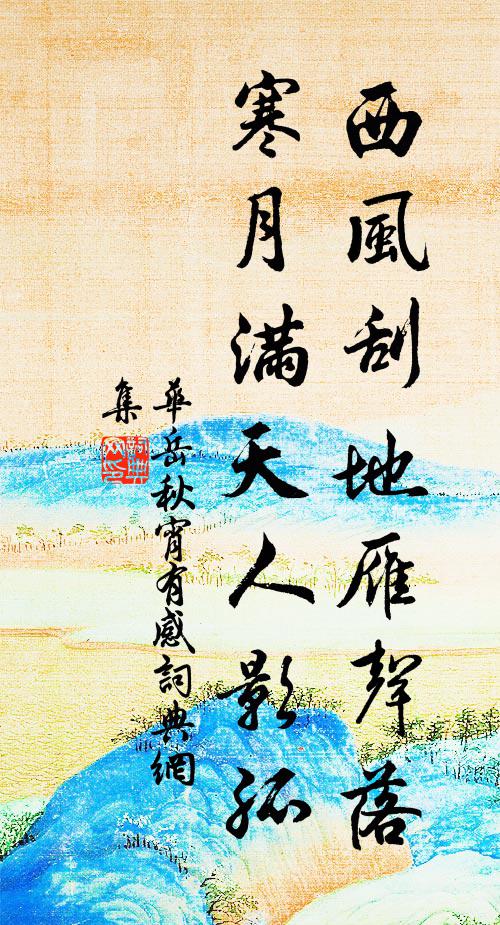 西風刮地雁聲落
寒月滿天人影孤
華岳秋宵有感詞典網
集